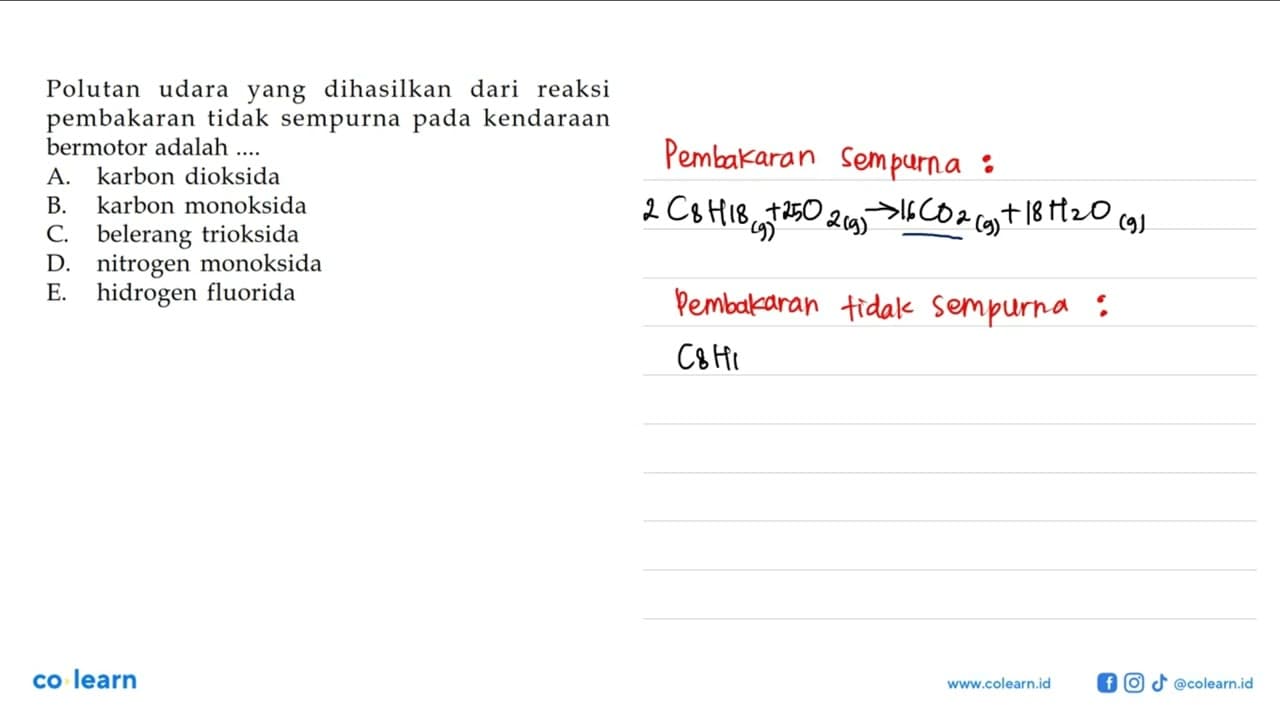 Polutan udara yang dihasilkan dari reaksi
pembakaran tidak sempurna pada kendaraan
bermotor adalah ....
A. karbon dioksida
B. karbon monoksida
C. belerang trioksida
D. nitrogen monoksida
E. hidrogen fluorida
Pembakaran sempurna :
2 C8H18(g) + 25O2(g) → 16CO2(g) + 18H2O(g)
Pembakaran tidak sempurna :
C8H1
co learn
www.colearn.id
@colearn.id